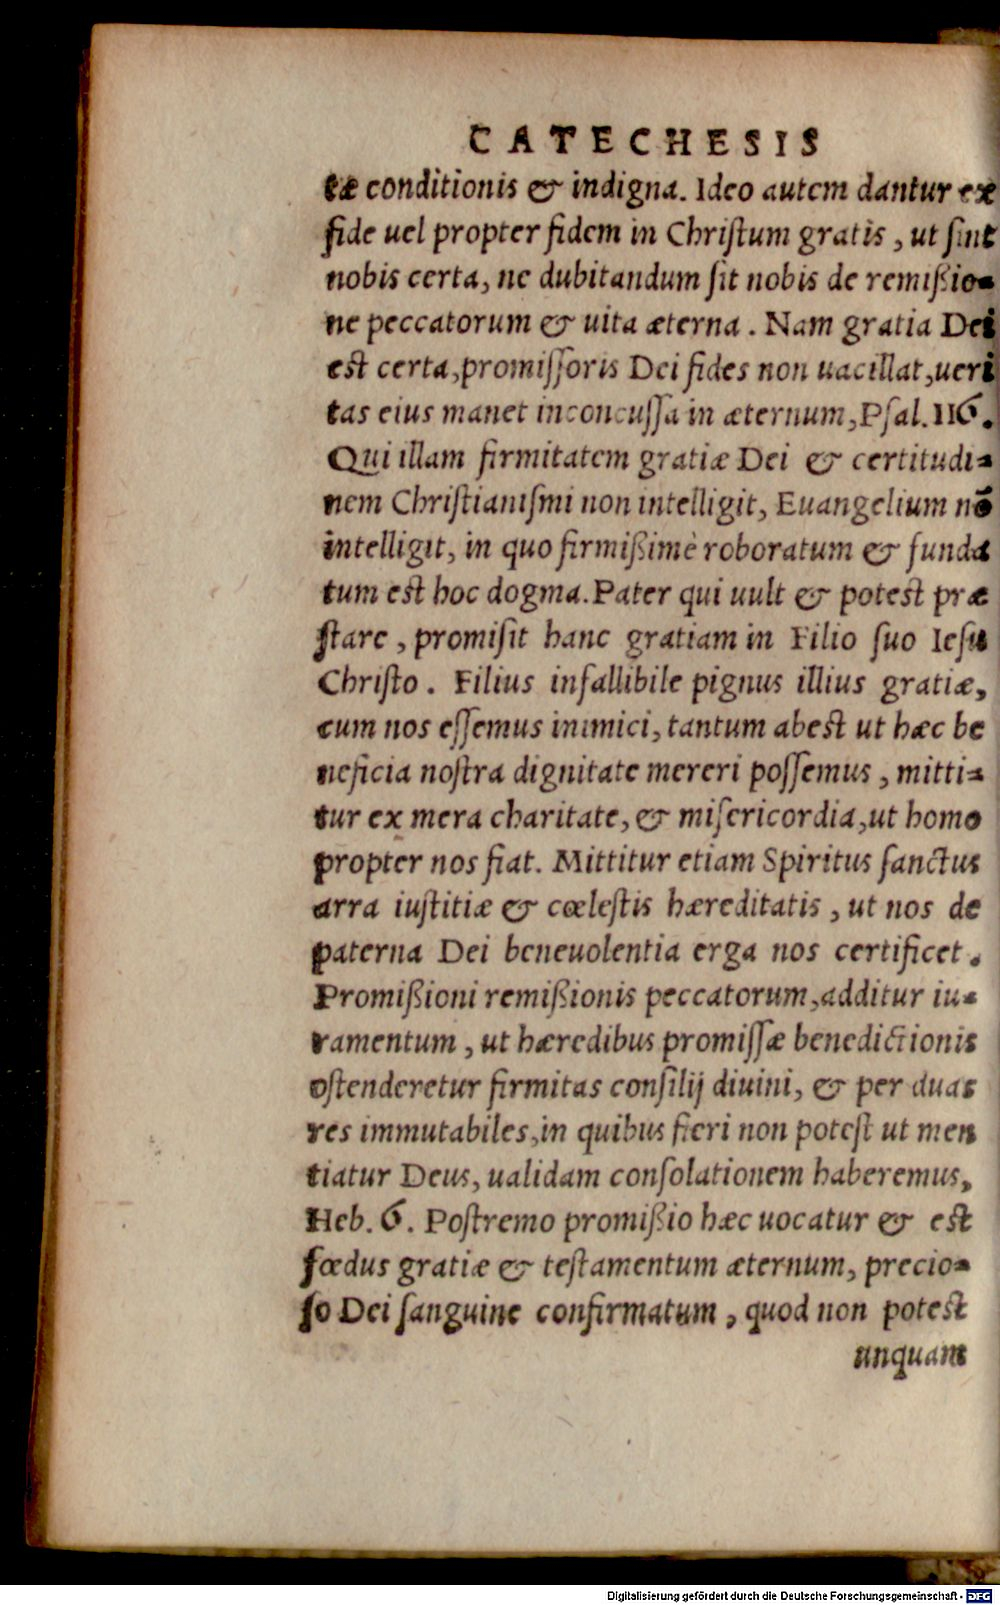 CATECHESIS
tæ conditionis & indigna. Ideo autem dantur ex
fide uel propter fidem in Chriſtum gratis, ut ſint
nobis certa, ne dubitandum ſit nobis de remißio=
ne peccatorum & uita æterna. Nam gratia Dei
est certa, promiſſoris Dei fides non uacillat, ueri
tas eius manet inconcuſſa in æternum, Pſal. 116.
Qui illam firmitatem gratiæ Dei & certitudi=
nem Chriſtianiſmi non intelligit, Euangelium nõ
intelligit, in quo firmißimè roboratum & funda
tum est hoc dogma. Pater qui uult & potest præ
ſtare, promiſit hanc gratiam in Filio ſuo Ieſu
Chriſto. Filius infallibile pignus illius gratiæ,
cum nos eſſemus inimici, tantum abest ut hæc be
neficia noſtra dignitate mereri poſſemus, mitti=
tur ex mera charitate, & miſericordia, ut homo
propter nos fiat. Mittitur etiam Spiritus ſanctus
arra iuſtitiæ & cœleſtis hæreditatis, ut nos de
paterna Dei beneuolentia erga nos certificet.
Promißioni remißionis peccatorum, additur iu=
ramentum, ut hæredibus promiſſæ benedictionis
oſtenderetur firmitas conſilij diuini, & per duas
res immutabiles, in quibus fieri non potest ut men
tiatur Deus, ualidam conſolationem haberemus,
Heb. 6. Poſtremo promißio hæc uocatur & est
fœdus gratiæ & teſtamentum æternum, precio=
ſo Dei ſanguine confirmatum, quod non potest
unquam
Digitalisierung gefördert durch die Deutsche Forschungsgemeinschaft - DFG